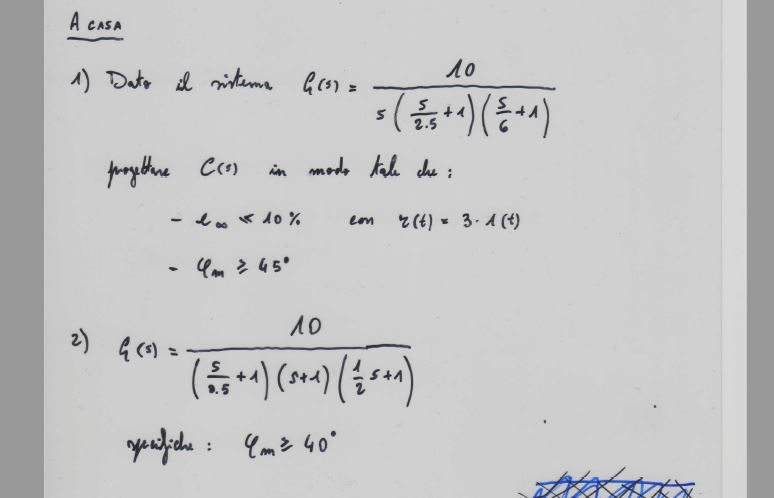 A CASA
1) Dato il sistema G(s) = 10 / s (s/2.5 + 1) (s/6 + 1)
progettare C(s) in modo tale che :
- e∞ ≪ 10% con r(t) = 3 · 1(t)
- φm ≥ 45°
2) G(s) = 10 / (s/0.5 + 1) (s+1) (1/2 s+1)
specifiche : φm ≥ 40°